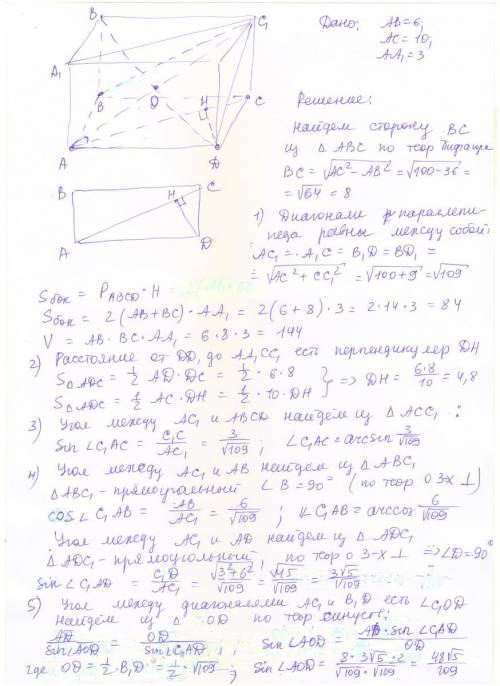 B₁
C₁
A₁
B
O
H
C
A
D
Дано: AB = 6,
AC = 10,
AA₁ = 3
Решение:
Найдем сторону BC
из △ ABC по теор Пифагора
BC = √(AC² − AB²) = √(100 − 36) =
= √64 = 8
B
H
C
A
D
1) Диагонали параллепи-
педа равны между собой:
AC₁ = A₁C = B₁D = BD₁ =
= √(AC² + CC₁²) = √(100 + 9) = √109
Sбок = P_ABCD · H
Sбок = 2(AB + BC) · AA₁ = 2(6 + 8) · 3 = 2 · 14 · 3 = 84
V = AB · BC · AA₁ = 6 · 8 · 3 = 144
2) Расстояние от DD₁ до AA₁CC₁ есть перпендикуляр DH
S△ADC = 1/2 AD · DC = 1/2 · 6 · 8
S△ADC = 1/2 AC · DH = 1/2 · 10 · DH } => DH = 6·8/10 = 4,8
3) Угол между AC₁ и ABCD найдем из △ ACC₁ :
Sin ∠C₁AC = C₁C/AC₁ = 3/√109 ; ∠C₁AC = arcsin 3/√109
4) Угол между AC₁ и AB найдем из △ ABC₁
△ABC₁ - прямоугольный ∠B = 90° (по теор о 3-х ⊥)
cos ∠C₁AB = AB/AC₁ = 6/√109 ; ∠C₁AB = arccos 6/√109
Угол между AC₁ и AD найдем из △ ADC₁
△ADC₁ - прямоугольный, по теор о 3-х ⊥ => ∠D = 90°
Sin ∠C₁AD = C₁D/AC₁ = √(3² + 6²)/√109 = √45/√109 = 3√5/√109
5) Угол между диагоналями AC₁ и B₁D есть ∠C₁OD
Найдем из △ OD по теор синусов:
AD/Sin∠AOD = OD/Sin∠C₁AD ; Sin∠AOD = AD · Sin∠C₁AD/OD
где OD = 1/2 · B₁D = 1/2 · √109 ; Sin∠AOD = 8 · 3√5 · 2/√109 · √109 = 48√5/109